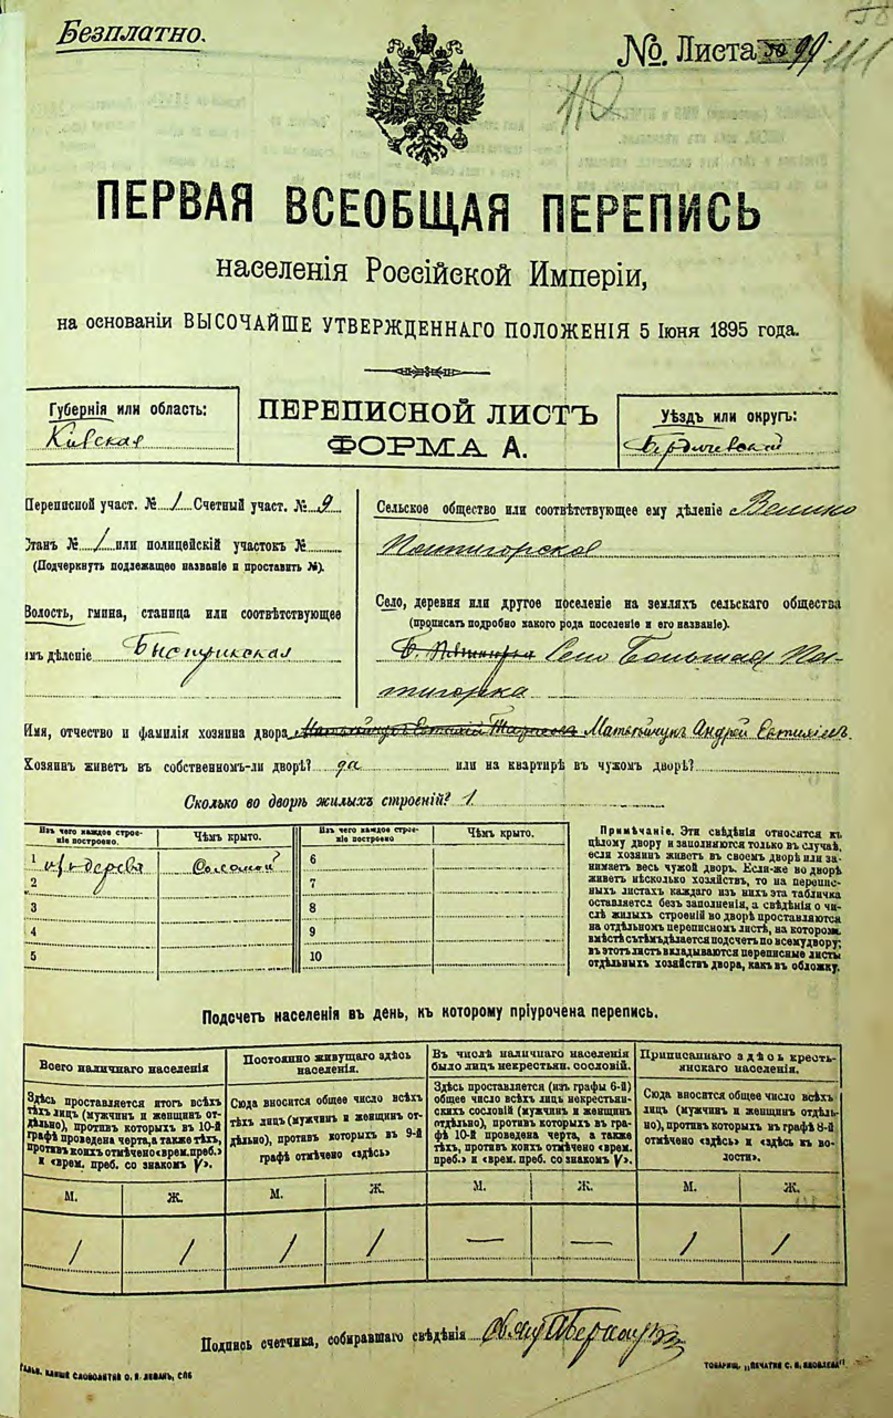 Безплатно.
№. Листа 99 111
110
ПЕРВАЯ ВСЕОБЩАЯ ПЕРЕПИСЬ
населенія Россійской Имперіи,
на основаніи ВЫСОЧАЙШЕ УТВЕРЖДЕННАГО ПОЛОЖЕНІЯ 5 Іюня 1895 года.
Губернія или область:
Кіевская
ПЕРЕПИСНОЙ ЛИСТЪ
ФОРМА А.
Уѣздъ или округъ:
Бердичевский
Переписной участ. № 1 Счетный участ. № 9
Станъ № 1 или полицейскій участокъ №
(Подчеркнуть подлежащее названіе и проставить №).
Волость, гмина, станица или соотвѣтствующее
имъ дѣленіе Быстрикская
Сельское общество или соотвѣтствующее ему дѣленіе Велико
Пятигорское
Село, деревня или другое поселеніе на земляхъ сельскаго общества
(прописать подробно какого рода поселеніе и его названіе).
Село Большая Пя-
тигорка
Имя, отчество и фамилія хозяина двора Андрей
Хозяинъ живетъ въ собственномъ-ли дворѣ? да или на квартирѣ въ чужомъ дворѣ?
Сколько во дворѣ жилыхъ строеній? 1
Изъ чего каждое строе-
ніе построено.
Чѣмъ крыто.
Изъ чего каждое строе-
ніе построено
Чѣмъ крыто.
1 изъ дерева Соломой 6
2 7
3 8
4 9
5 10
Примѣчаніе. Эти свѣдѣнія относятся къ
цѣлому двору и заполняются только въ случаѣ,
если хозяинъ живетъ въ своемъ дворѣ или за-
нимаетъ весь чужой дворъ. Если-же во дворѣ
живетъ нѣсколько хозяйствъ, то на перепис-
ныхъ листахъ каждаго изъ нихъ эта табличка
оставляется безъ заполненія, а свѣдѣнія о чи-
слѣ жилыхъ строеній во дворѣ проставляются
на отдѣльномъ переписномъ листѣ, на которомъ
вмѣстѣ съ тѣмъ дѣлается подсчетъ по всему двору;
въ этотъ листъ вкладываются переписные листы
отдѣльныхъ хозяйствъ двора, какъ въ обложку.
Подсчетъ населенія въ день, къ которому пріурочена перепись.
Всего наличнаго населенія
Здѣсь проставляется итогъ всѣхъ
тѣхъ лицъ (мужчинъ и женщинъ от-
дѣльно), противъ которыхъ въ 10-й
графѣ проведена черта, а также тѣхъ,
противъ коихъ отмѣчено «врем. преб.»
и «врем. преб. со знакомъ V».
Постоянно живущаго здѣсь
населенія.
Сюда вносится общее число всѣхъ
тѣхъ лицъ (мужчинъ и женщинъ от-
дѣльно), противъ которыхъ въ 9-й
графѣ отмѣчено «здѣсь»
Въ числѣ наличнаго населенія
было лицъ некрестьян. сословій.
Здѣсь проставляется (изъ графы 6-й)
общее число всѣхъ лицъ некрестьян-
скихъ сословій (мужчинъ и женщинъ
отдѣльно), противъ которыхъ въ гра-
фѣ 10-й проведена черта, а также
тѣхъ, противъ коихъ отмѣчено «врем.
преб.» и «врем. преб. со знакомъ V».
Приписаннаго здѣсь кресть-
янскаго населенія.
Сюда вносится общее число всѣхъ
лицъ (мужчинъ и женщинъ отдѣль-
но), противъ которыхъ въ графѣ 8-й
отмѣчено «здѣсь» и «здѣсь къ во-
лости».
М. Ж. М. Ж. М. Ж. М. Ж.
1 1 1 1 — — 1 1
Подпись счетчика, собиравшаго свѣдѣнія
ГАЛЬВ. КЛИШЕ СЛОВОЛИТНИ О. И. ЛЕМАНЪ, СПБ
ТОВАРИЩ. „ПЕЧАТНЯ С. П. ЯКОВЛЕВА“.